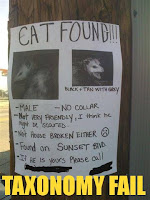 CAT FOUND!!!
BLACK + TAN WITH GREY
- MALE - NO COLLAR
- Not VERY FRIENDLY, I think he
might be SCARED
- Not HOUSE BROKEN EITHER
- Found on SUNSET BLVD.
If he is yours Please call
TAXONOMY FAIL